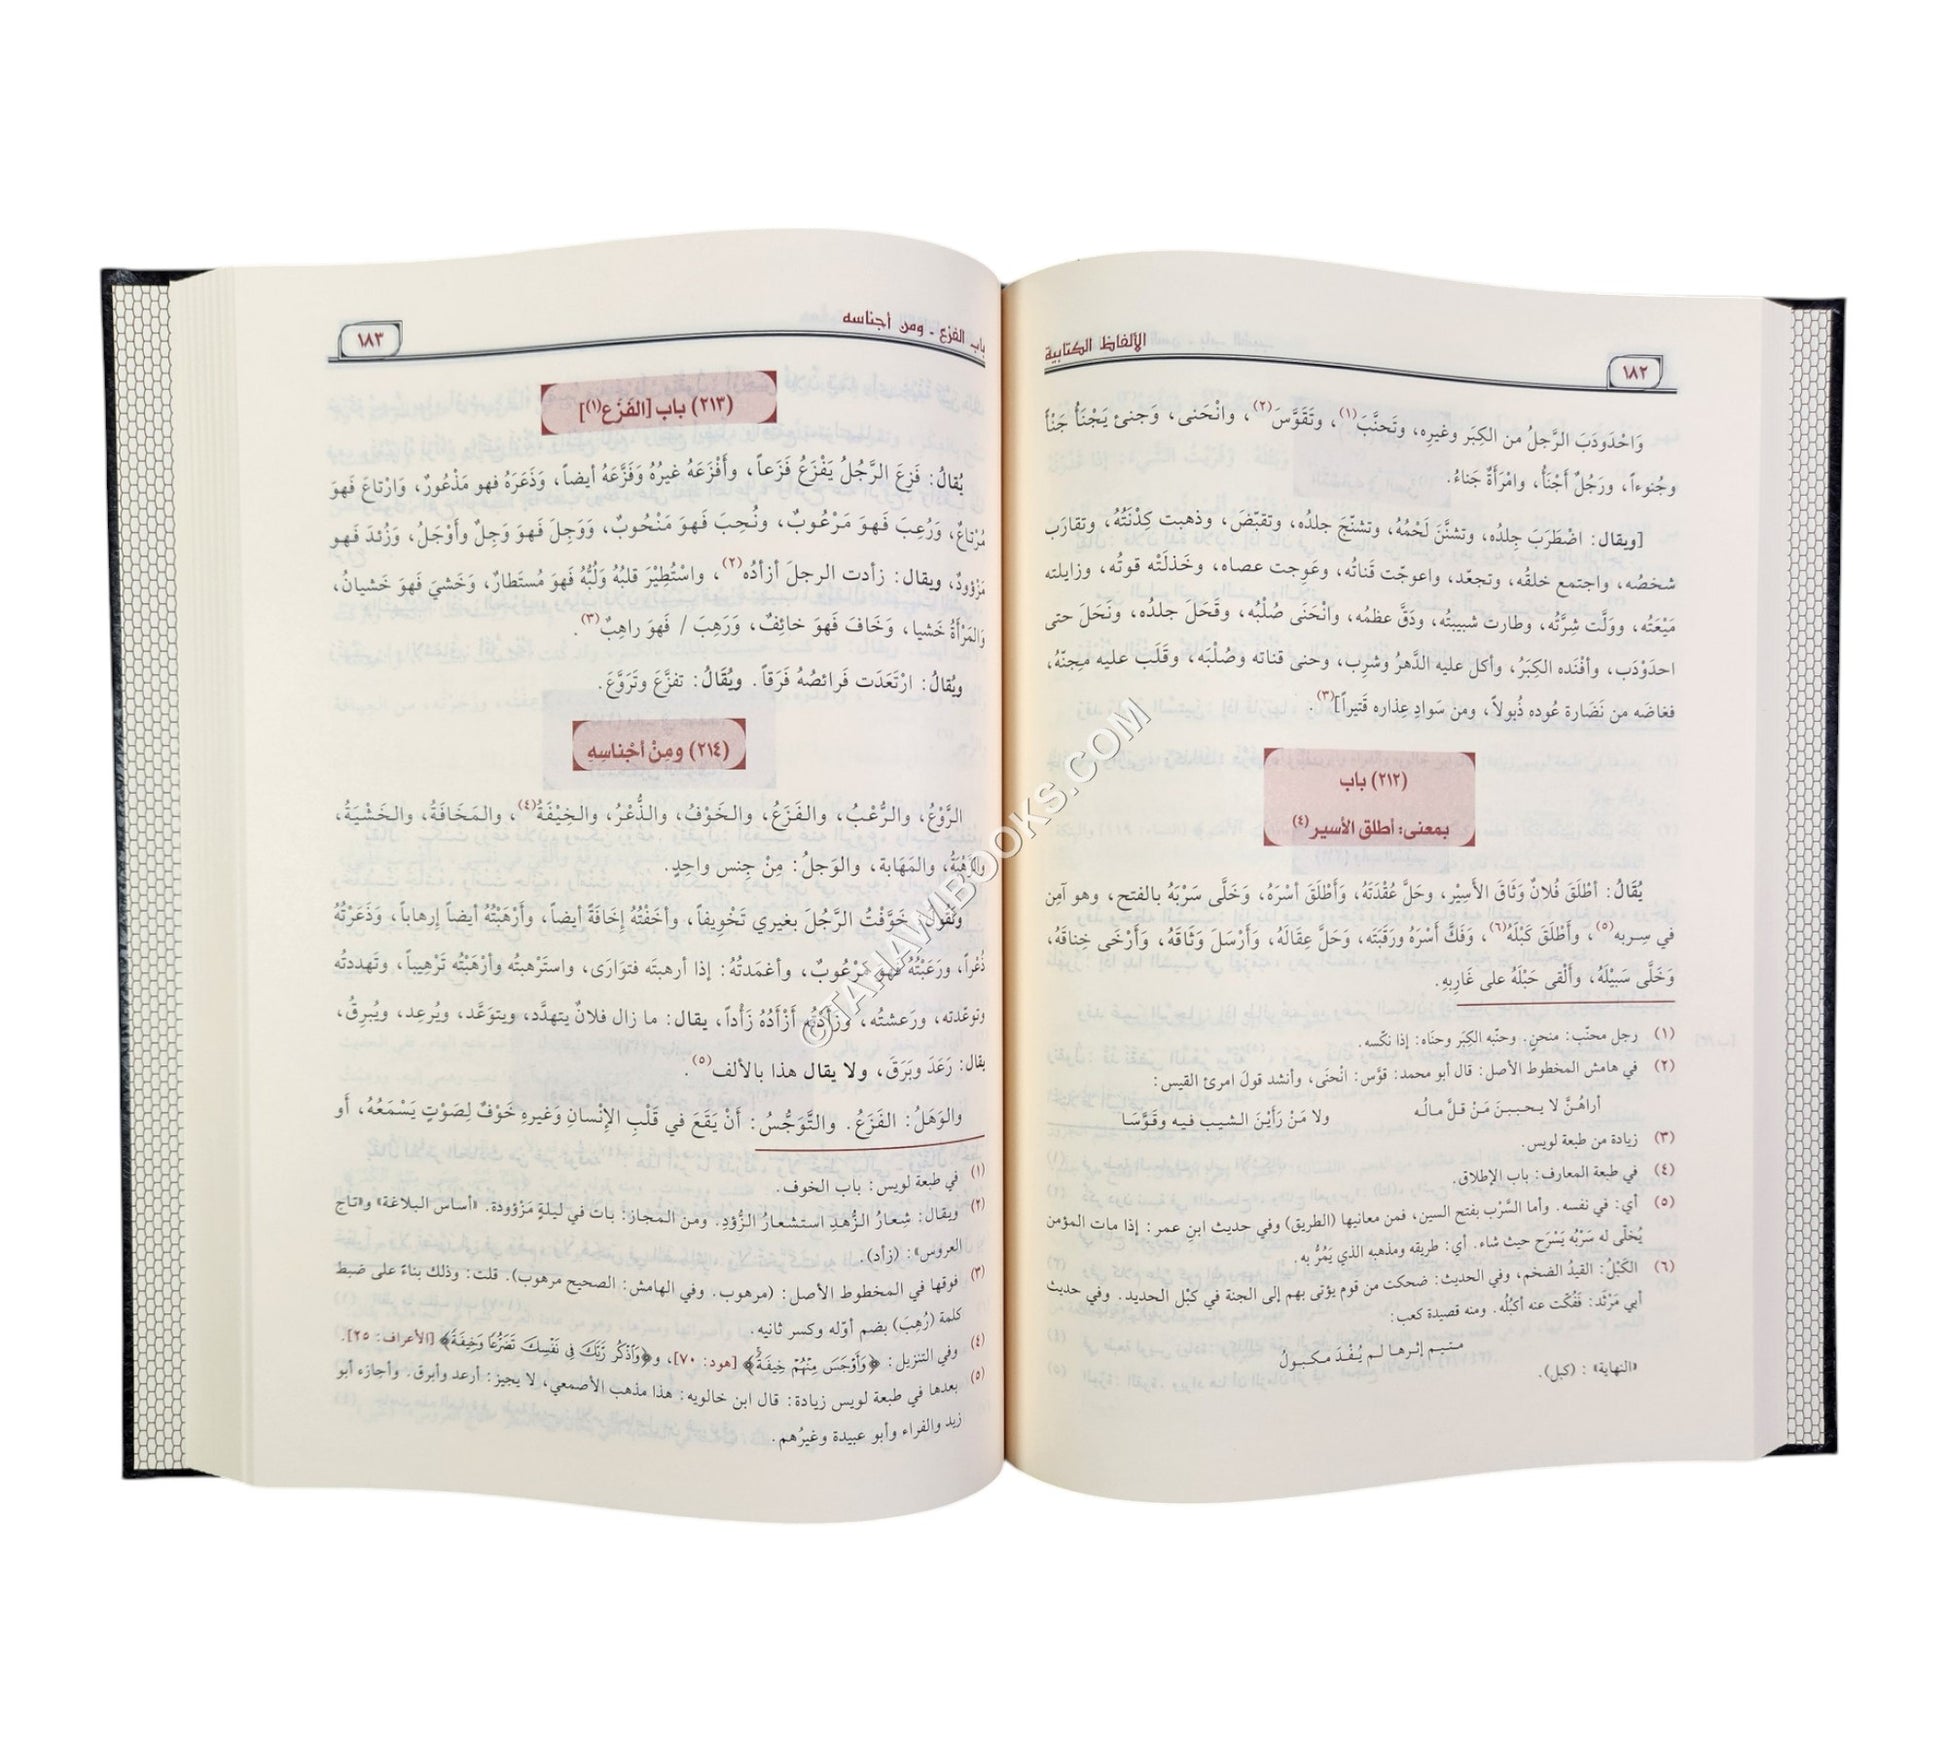 ١٨٢
الألفاظ الكتابية
وَاحْدَودَبَ الرَّجلُ من الكِبَر وغيرِه، وتَحنَّبَ(١)، وتَقَوَّسَ(٢)، وانْحَنى، وَجنئ يَجْنَأُ جَنْأ
وجُنوءاً، ورَجُلٌ أجْنَأُ، وامْرَأَةٌ جَناءُ.
[ويقال: اضْطَرَبَ جِلدُه، وتشنَّنَ لَحْمُهُ، وتشنّجَ جلدُه، وتقبّضَ، وذهبت كِدْنَتُهُ، وتقارَب
شخصُه، واجتمع خلقُه، وتجعّد، واعوجّت قَناتُه، وعَوِجت عصاه، وخَذلَتْه قوتُه، وزايلته
مَيْعَتُه، ووَلَّت شِرَّتُه، وطارت شبيبتُه، ودَقَّ عظمُه، وانْحَنَى صُلْبُه، وقَحَلَ جلدُه، ونَحَلَ حتى
احدَوْدَب، وأفْنَده الكِبَرُ، وأكل عليه الدَّهرُ وشرِب، وحنى قناته وصُلْبَه، وقَلَب عليه مِجنّهُ،
فغاضَه من نَضَارة عُوده ذُبولاً، ومن سَوادِ عِذاره قَتيراً](٣).
(٢١٢) باب
بمعنى: أطلق الأسير(٤)
يُقَالُ: أطْلَقَ فُلانٌ وَثَاقَ الأَسِيْر، وحَلَّ عُقْدَتَهُ، وَأَطْلَقَ أسْرَهُ، وَخَلَّى سَرْبَهُ بالفتح، وهو آمِن
في سِربه(٥)، وأَطْلَقَ كَبْلَهُ(٦)، وَفَكَّ أسْرَهُ ورَقَبَتَه، وَحَلَّ عِقَالَهُ، وَأَرْسَلَ وَثَاقَهُ، وَأَرْخَى خِناقَهُ،
وَخَلَّى سَبِيْلَهُ، وَأَلْقى حَبْلَهُ على غَارِبهِ.
(١) رجل محنّب: منحنٍ. وحنّبه الكِبَر وحنَاه: إذا نكّسه.
(٢) في هامش المخطوط الأصل: قال أبو محمد: قوَّس: انْحنَى، وأنشد قولَ امرئ القيس:
أراهُنَّ لا يحببنَ مَنْ قلَّ مالُه ولا مَنْ رَأَيْنَ الشيب فيه وقَوَّسَا
(٣) زيادة من طبعة لويس.
(٤) في طبعة المعارف: باب الإطلاق.
(٥) أي: في نفسه. وأما السَّرْب بفتح السين، فمن معانيها (الطريق) وفي حديث ابنِ عمر: إذا مات المؤمن
يُخلّى له سَرْبُه يَسْرَح حيث شاء. أي: طريقه ومذهبه الذي يَمُرُّ به.
(٦) الكَبْلُ: القيدُ الضخم، وفي الحديث: ضحكت من قوم يؤتى بهم إلى الجنة في كبْل الحديد. وفي حديث
أبي مَرْثَد: فَفُكّت عنه أكبُلُه. ومنه قصيدة كعب:
متيم إثرها لم يُفْدَ مكبولُ
«النهاية»: (كبل).
باب الفزع - ومن أجناسه
١٨٣
(٢١٣) باب [الفَزَع(١)]
يُقالُ: فَزِعَ الرَّجُلُ يَفْزَعُ فَزَعاً، وأَفْزَعَهُ غيرُهُ وَفَزَّعَهُ أيضاً، وَذَعَرَهُ فهو مَذْعُورٌ، وَارْتاعَ فَهوَ
مُرْتاعٌ، وَرُعِبَ فَهوَ مَرْعُوبٌ، ونُحِبَ فَهوَ مَنْحُوبٌ، وَوَجِلَ فَهوَ وَجِلٌ وأَوْجَلُ، وَزُئدَ فَهو
مَزْؤودٌ، ويقال: زأدت الرجلَ أزأدُه(٢)، واسْتُطِيْرَ قلبُهُ وَلُبُّهُ فَهوَ مُستَطارٌ، وَخَشيَ فَهوَ خَشيانُ،
وَالمَرْأَةُ خَشيا، وَخَافَ فَهوَ خائِفٌ، وَرَهِبَ / فَهوَ راهِبٌ(٣).
ويُقالُ: ارْتَعَدَت فَرائصُهُ فَرَقاً. ويُقَالُ: تفزَّعَ وتَرَوَّعَ.
(٢١٤) ومِنْ أجْناسِهِ
الرَّوْعُ، والرُّعْبُ، والفَزَعُ، والخَوْفُ، والذُّعْرُ، والخِيْفَةُ(٤)، والمَخَافَةُ، والخَشْيَةُ،
والرَّهْبَةُ، والمَهَابة، والوَجلُ: مِنْ جِنس واحِدٍ.
وتَقُولُ: خَوَّفْتُ الرَّجُلَ بغيري تَخْوِيفاً، وأخَفْتُهُ إخَافَةً أيضاً، وأَرْهَبْتُهُ أيضاً إرهاباً، وَذَعَرْتُهُ
ذُعْراً، ورَعَبْتُهُ فَهوَ مَرْعُوبٌ، وأغمَدتُهُ: إذا أرهبتَه فتوَارَى، واستَرْهبتُه وأرْهَبْتُه تَرْهِيباً، وتَهددتُه
وتوعّدته، ورَعشتُه، وزَأَدْتُه أزْأَدُهُ زَأْداً، يقال: ما زال فلانٌ يتهدَّد، ويتوَعَّد، ويُرعِد، ويُبرِقُ،
يقال: رَعَدَ وبَرَقَ، ولا يقال هذا بالألف(٥).
والوَهَلُ: الفَزَعُ. والتَّوَجُّسُ: أَنْ يَقَعَ في قَلْبِ الإِنْسانِ وَغيرِهِ خَوْفٌ لِصَوْتٍ يَسْمَعُهُ، أو
(١) في طبعة لويس: باب الخوف.
(٢) ويقال: شِعارُ الزُّهدِ استشعارُ الزُّؤدِ. ومن المجاز: باتَ في ليلةٍ مَزْؤودة. «أساس البلاغة» و«تاج
العروس»: (زأد).
(٣) فوقها في المخطوط الأصل: (مرهوب. وفي الهامش: الصحيح مرهوب). قلت: وذلك بناءً على ضبط
كلمة (رُهِبَ) بضم أوّله وكسر ثانيه.
(٤) وفي التنزيل: ﴿وَأَوْجَسَ مِنْهُمْ خِيفَةً﴾ [هود: ٧٠]، و﴿وَاذْكُر رَّبَّكَ فِى نَفْسِكَ تَضَرُّعًا وَخِيفَةً﴾ [الأعراف: ٢٥].
(٥) بعدها في طبعة لويس زيادة: قال ابن خالويه: هذا مذهب الأصمعي، لا يجيز: أرعد وأبرق. وأجازه أبو
زيد والفراء وأبو عبيدة وغيرُهم.
©TAHAWIBOOKS.COM